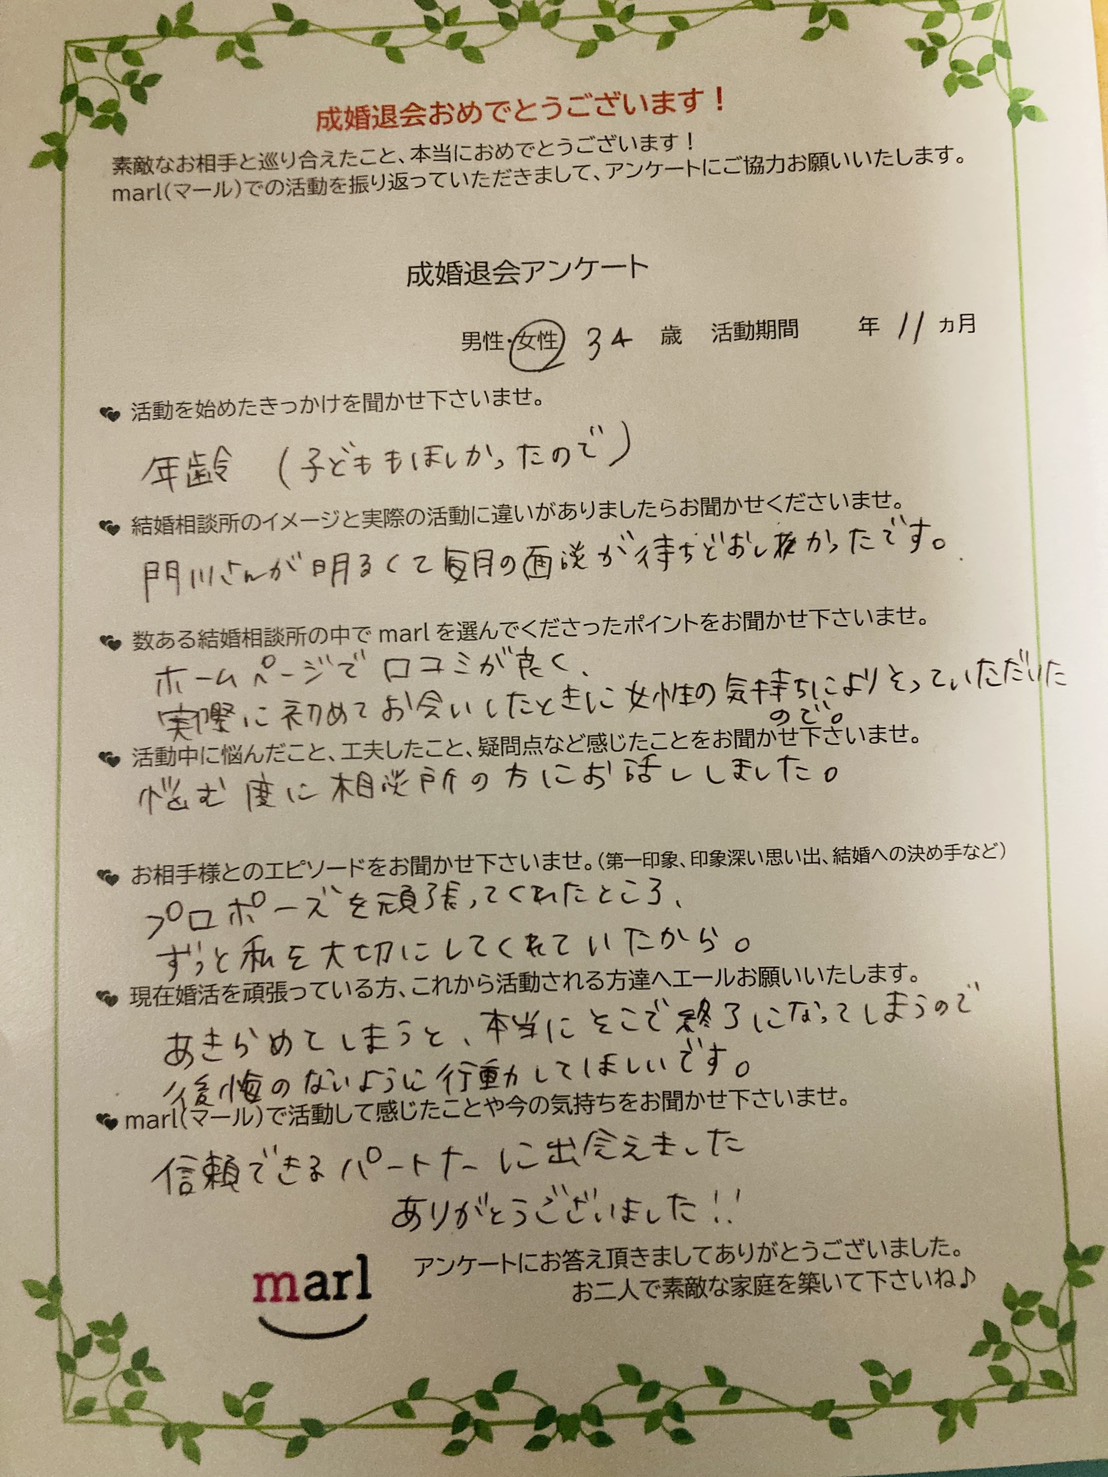 成婚退会おめでとうございます！
素敵なお相手と巡り合えたこと、本当におめでとうございます！
marl(マール)での活動を振り返っていただきまして、アンケートにご協力お願いいたします。
成婚退会アンケート
男性・女性 34 歳 活動期間 年 11 カ月
活動を始めたきっかけを聞かせ下さいませ。
年齢 (子どももほしかったので)
結婚相談所のイメージと実際の活動に違いがありましたらお聞かせくださいませ。
門川さんが明るくて毎月の面談が待ちどおし抜かったです。
数ある結婚相談所の中でmarlを選んでくださったポイントをお聞かせ下さいませ。
ホームページで口コミが良く、
実際に初めてお会いしたときに女性の気持ちによりそっていただいた
ので。
活動中に悩んだこと、工夫したこと、疑問点など感じたことをお聞かせ下さいませ。
悩む度に相談所の方にお話ししました。
お相手様とのエピソードをお聞かせ下さいませ。(第一印象、印象深い思い出、結婚への決め手など)
プロポーズを頑張ってくれたところ、
ずっと私を大切にしてくれていたから。
現在婚活を頑張っている方、これから活動される方達へエールお願いいたします。
あきらめてしまうと、本当にそこで終了になってしまうので
後悔のないように行動してほしいです。
marl(マール)で活動して感じたことや今の気持ちをお聞かせ下さいませ。
信頼できるパートナーに出会えました
ありがとうございました!!
marl
アンケートにお答え頂きましてありがとうございました。
お二人で素敵な家庭を築いて下さいね♪